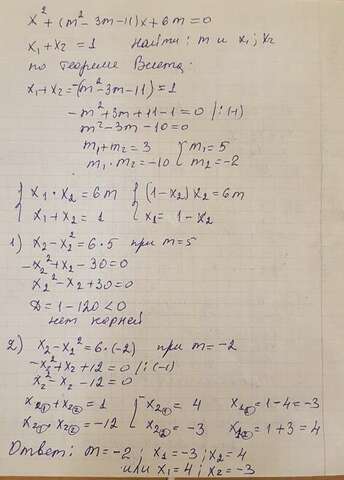 x² + (m² - 3m - 11)x + 6m = 0
x₁ + x₂ = 1 найти: m и x₁; x₂
по теореме Виета:
x₁ + x₂ = -(m² - 3m - 11) = 1
- m² + 3m + 11 - 1 = 0 / :(-1)
m² - 3m - 10 = 0
m₁ + m₂ = 3 { m₁ = 5
m₁ · m₂ = -10 { m₂ = -2
{ x₁ · x₂ = 6m { (1 - x₂) x₂ = 6m
{ x₁ + x₂ = 1 { x₁ = 1 - x₂
1) x₂ - x₂² = 6 · 5 при m = 5
- x₂² + x₂ - 30 = 0
x₂² - x₂ + 30 = 0
D = 1 - 120 < 0
нет корней
2) x₂ - x₂² = 6 · (-2) при m = -2
- x₂² + x₂ + 12 = 0 / :(-1)
x₂² - x₂ - 12 = 0
x₂① + x₂② = 1 [ x₂① = 4 x₁① = 1 - 4 = -3
x₂① · x₂② = -12 [ x₂② = -3 x₁② = 1 + 3 = 4
Ответ: m = -2 ; x₁ = -3 ; x₂ = 4
или x₁ = 4 ; x₂ = -3